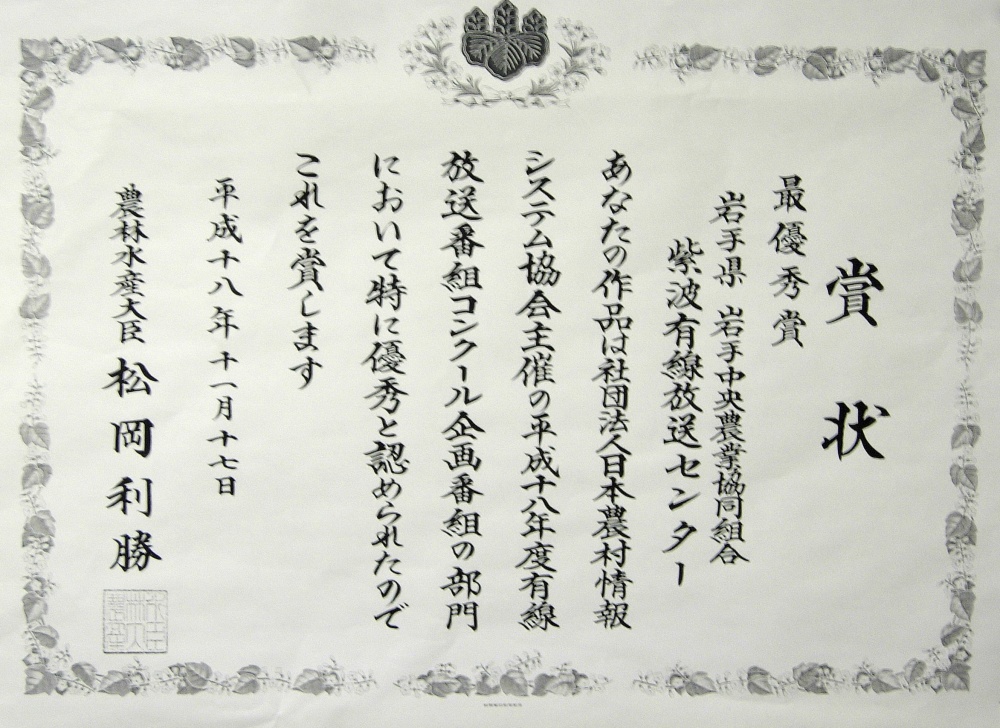 賞状
最優秀賞
岩手県 岩手中央農業協同組合
紫波有線放送センター
あなたの作品は社団法人日本農村情報
システム協会主催の平成十八年度有線
放送番組コンクール企画番組の部門
において特に優秀と認められたので
これを賞します
平成十八年十一月十七日
農林水産大臣 松岡利勝